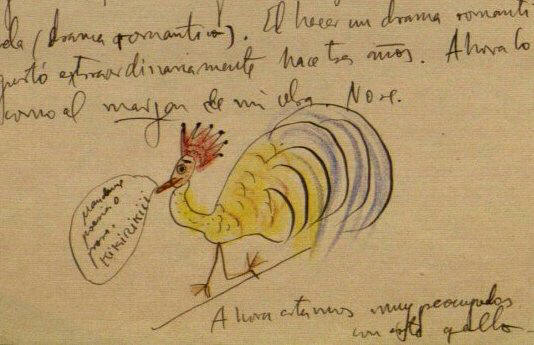 da (drama romantico). El hacer un drama romanti
gustó extraordinariamente hace tres años. Ahora lo
como al margen de mi obra. No se.
poema o
prosa.
KiKiRiKiii
Ahora estamos muy preocupados
con este gallo.